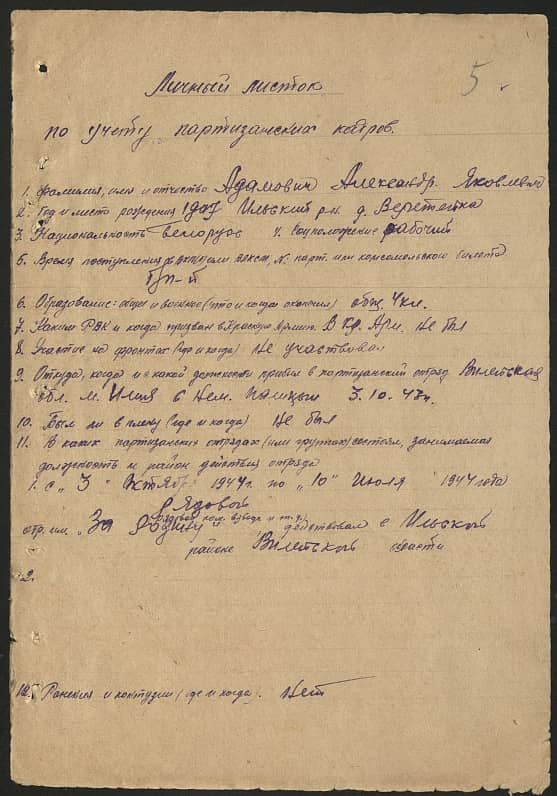 5
Личный листок
по учету партизанских кадров.
1. Фамилия, имя и отчество Адамович Александр. Яковлевич
2. Год и место рождения 1907 Ильский р-н. д. Веретейка
3. Национальность белорус 4. Соцположение рабочий
5. Время поступления в партию №. парт. или комсомольского билета
б/п-й
6. Образование: общее и военное (что и когда окончил) общ. 4 кл.
7. Каким РВК и когда призван в Красную Армию. В Кр. Арм. не был
8. Участие на фронтах (где и когда). Не участвовал
9. Откуда, когда и с какой должности прибыл в партизанский отряд Вилейская
обл. м. Илия в Нем. 3.10.43 г.
10. Был ли в плену (где и когда) не был
11. В каких партизанских отрядах (или группах) состоял, занимаемая
должность и район действия отряда
1. с "3" Октябр 1944 г. по "10" Июля 1944 года
Рядовой
(рядовой, ком. взвода и т.д.)
отр. им. "За Родину" действовал в Ильском
районе Вилейской области
2.
12. Ранения и контузии (где и когда). Нет